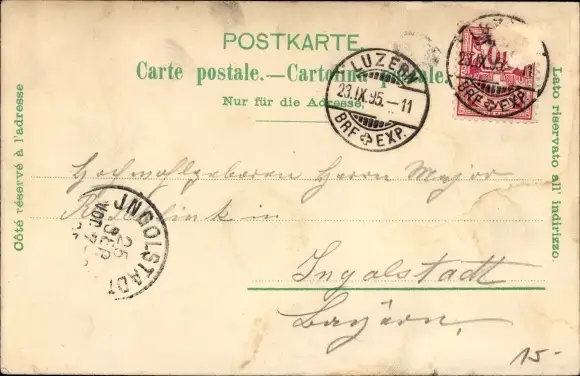 POSTKARTE.
Carte postale.—Cartolina postale.
Nur für die Adresse.
Côté réservé à l'adresse
Lato riservato all' indirizzo.
LUZERN
23.IX.95.-11
BRF EXP.
23.IX.95.-11
BRF EXP.
10
JNGOLSTADT
25
SEP
Hochwohlgeboren Herrn Major
in
Ingolstadt
Bayern.
15-